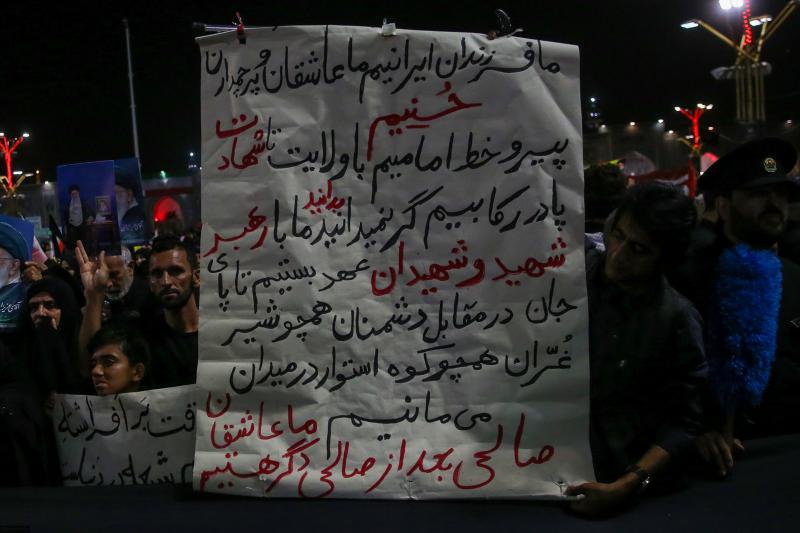 ما فرزندان ایرانیم ما عاشقان و پرچمداران
حُسنیم
پیرو خط امامیم با ولایت تا شهادت
پا در رکابیم گر نمیدانید بدانید ما با رهبر
شهید و شهیدان عهد بستیم تا پای
جان در مقابل دشمنان همچو شیر
غُرّان همچو کوه استوار در میدان
می مانیم ما عاشقان
صالحی بعد از صالحی دگر هستیم
بَر افراشتهِ